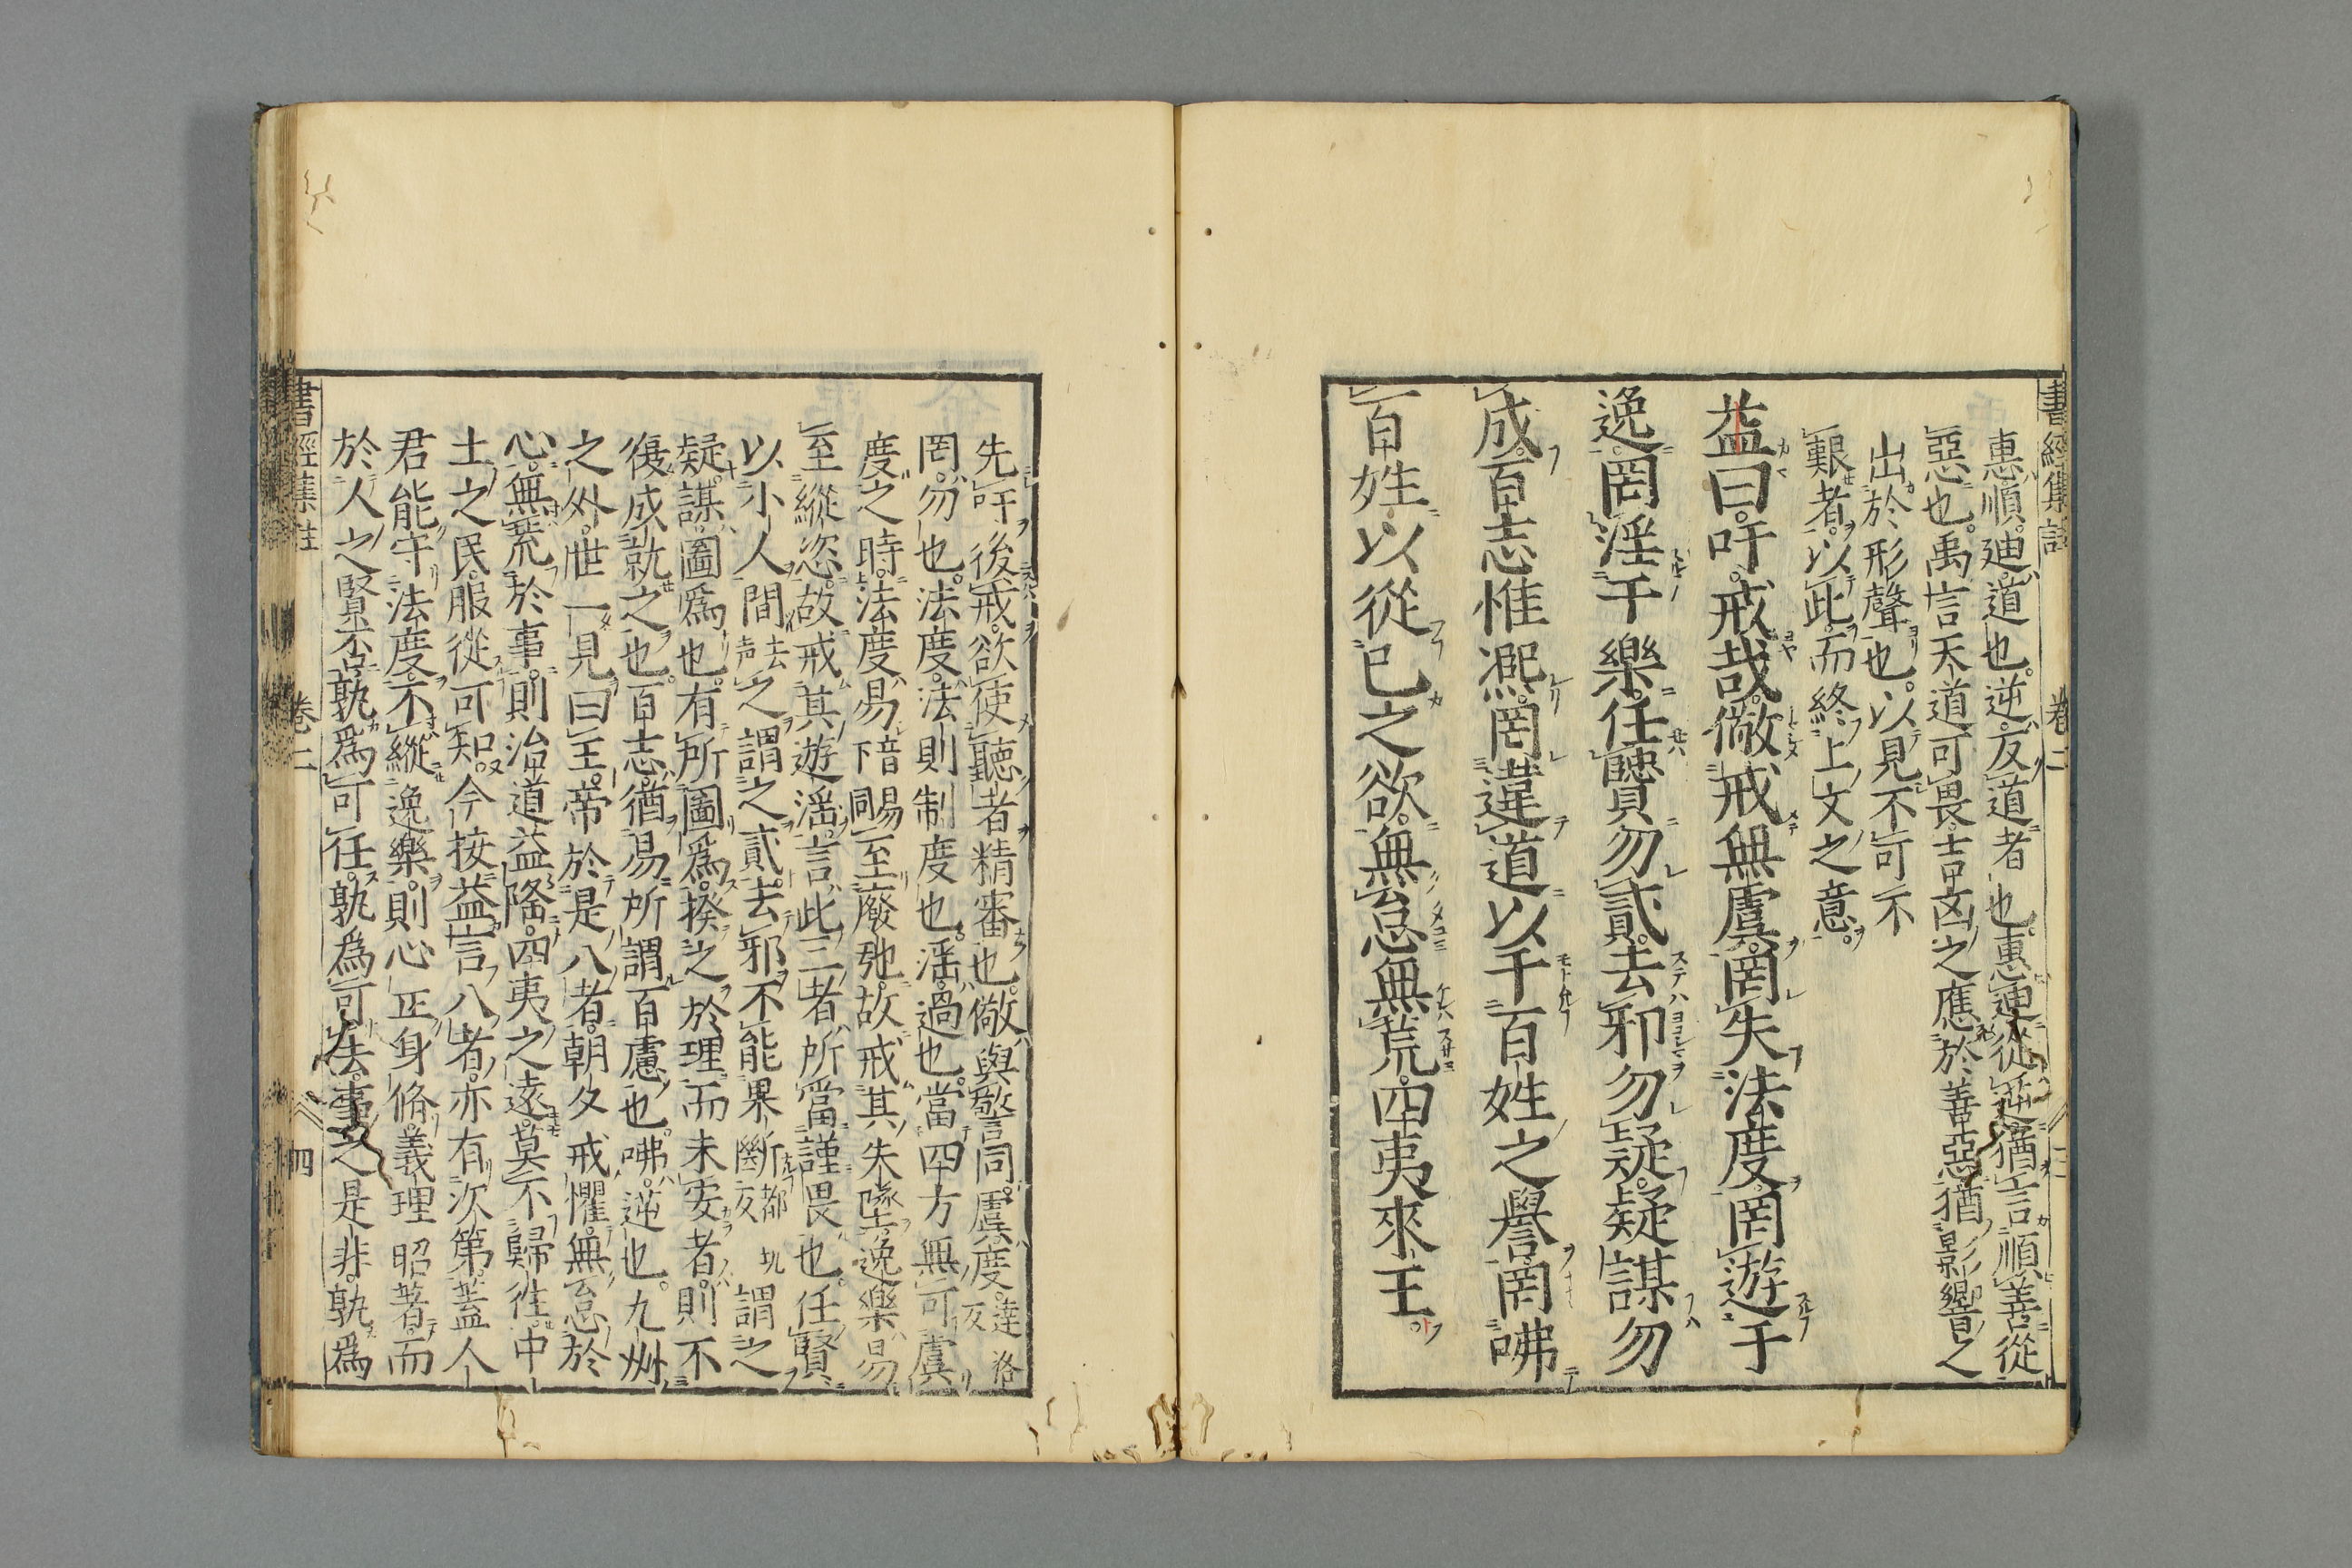 書經集註 卷二 三
惠順。迪道也。逆反道者也。惠迪從逆。猶言順善從
惡也。禹言天道可畏。吉凶之應於善惡。猶影響之
出於形聲也。以見不可不
艱者。以此而終上文之意。
益曰。吁。戒哉。儆戒無虞。罔失法度。罔遊于
逸。罔淫于樂。任賢勿貳。去邪勿疑。疑謀勿
成。百志惟熙。罔違道以干百姓之譽。罔咈
百姓以從己之欲。無怠無荒。四夷來王。
先吁後戒。欲使聽者精審也。儆與警同。虞度。達洛反
罔。勿也。法度。法則制度也。淫。過也。當四方無可虞
度之時。法度易音異下同至廢弛。故戒其失墜。逸樂易
至縱恣。故戒其遊淫。言此三者所當謹畏也。任賢
以小人間去声之謂之貳。去邪不能果斷都玩反謂之
疑。謀圖爲也。有所圖爲。揆之於理而未安者。則不
復成就之也。百志。猶易所謂百慮也。咈。逆也。九州
之外。世一見曰王。帝於是八者。朝夕戒懼。無怠於
心。無荒於事。則治道益隆。四夷之遠。莫不歸往。中
土之民。服從可知。今按益言八者。亦有次第。蓋人
君能守法度。不縱逸樂。則心正身脩。義理昭著。而
於人之賢否。孰爲可任。孰爲可去。事之是非。孰爲
書經集註 卷二 四